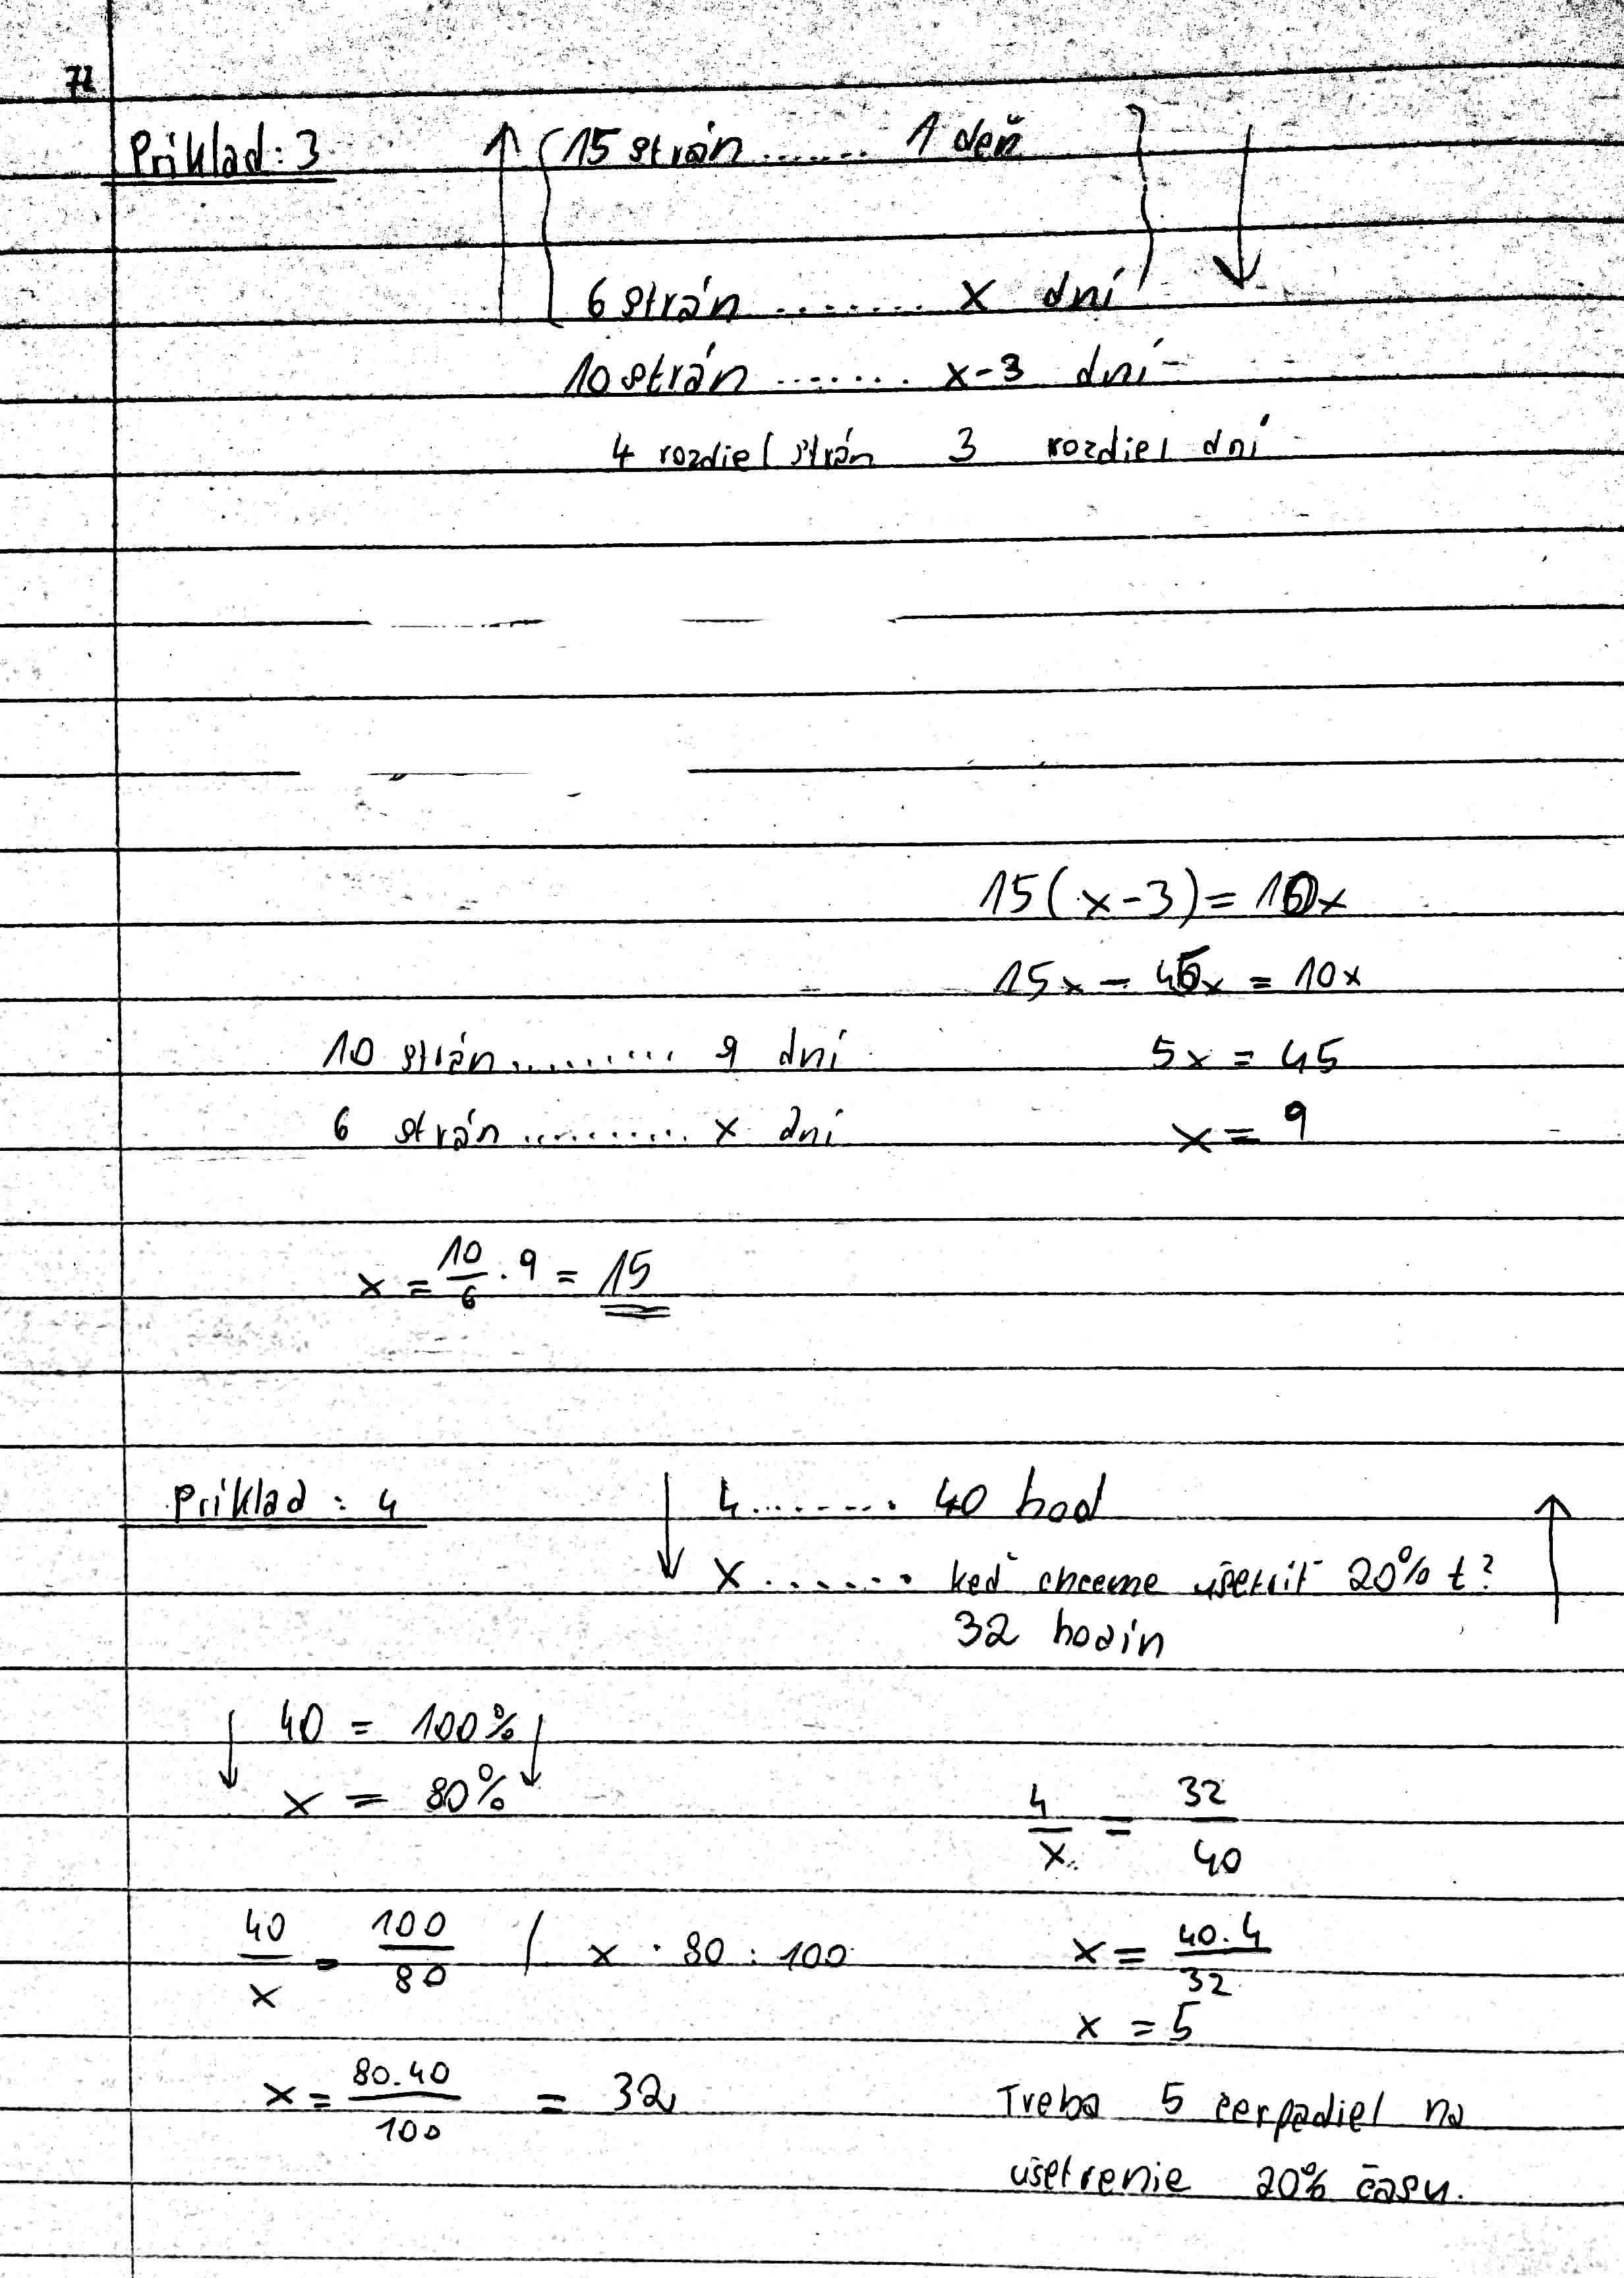 71
Príklad: 3 15 strán ....... 1 deň
6 strán ........ x dní
10 strán ....... x-3 dní
4 rozdiel strán 3 rozdiel dní
15(x-3) = 10x
15x - 45x = 10x
10 strán ......... 9 dní 5x = 45
6 strán .......... x dní x = 9
x = 10/6 . 9 = 15
Príklad : 4 4 ........ 40 hod
x ....... keď chceme ušetriť 20% t?
32 hodín
40 = 100%
x = 80%
4/x = 32/40
40/x = 100/80 / x · 80 : 100 x = 40.4/32
x = 5
x = 80.40/100 = 32 Treba 5 čerpadiel na
ušetrenie 20% času.